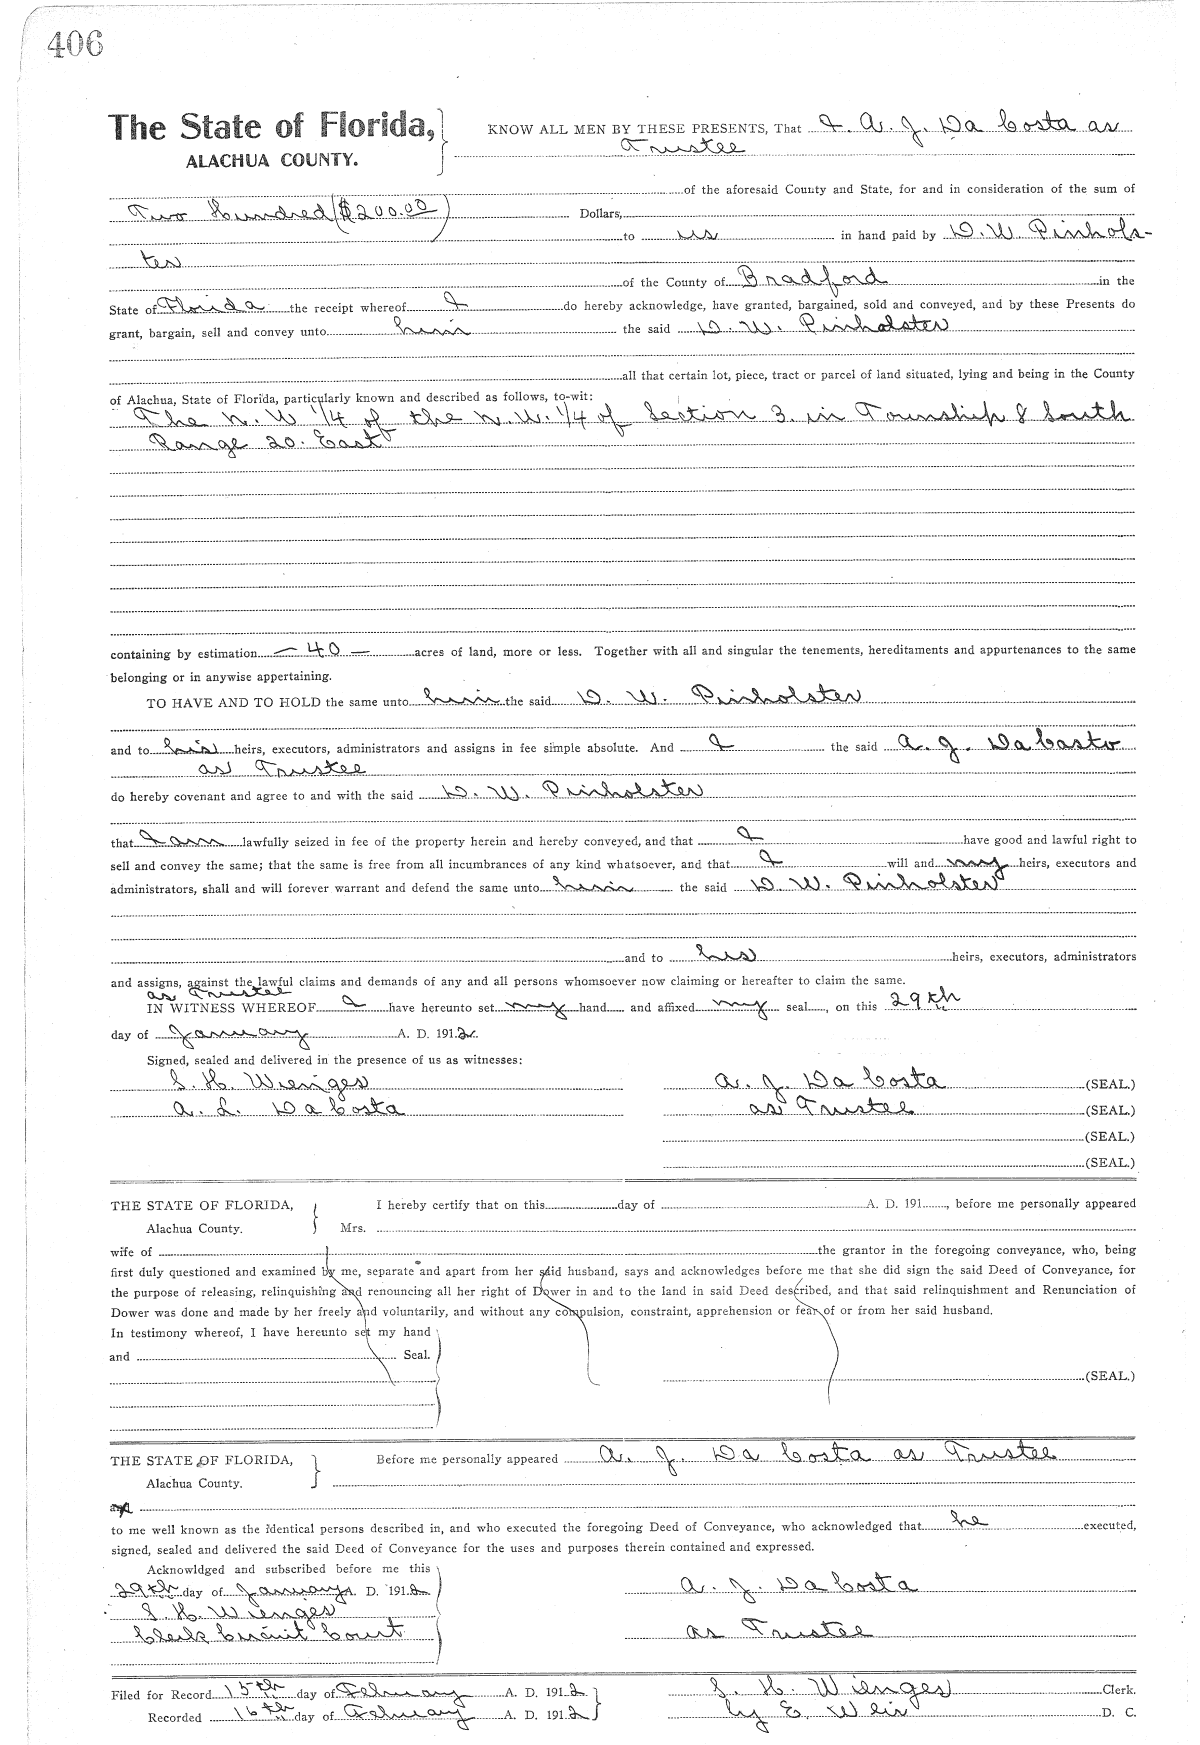 406
The State of Florida, KNOW ALL MEN BY THESE PRESENTS, That I. A. J. Da Costa as
ALACHUA COUNTY. Trustee
of the aforesaid County and State, for and in consideration of the sum of
Two Hundred ($200.00) Dollars,
to us in hand paid by D. W. Pinhols-
ter
of the County of Bradford in the
State of Florida the receipt whereof I do hereby acknowledge, have granted, bargained, sold and conveyed, and by these Presents do
grant, bargain, sell and convey unto him the said D. W. Pinholster
all that certain lot, piece, tract or parcel of land situated, lying and being in the County
of Alachua, State of Florida, particularly known and described as follows, to-wit:
The N. W 1/4 of the N. W. 1/4 of Section 3. in Township 8 South
Range 20. East
containing by estimation — 40 — acres of land, more or less. Together with all and singular the tenements, hereditaments and appurtenances to the same
belonging or in anywise appertaining.
TO HAVE AND TO HOLD the same unto him the said D. W. Pinholster
and to his heirs, executors, administrators and assigns in fee simple absolute. And I the said A. J. Da Casto
as Trustee
do hereby covenant and agree to and with the said D. W. Pinholster
that I am lawfully seized in fee of the property herein and hereby conveyed, and that I have good and lawful right to
sell and convey the same; that the same is free from all incumbrances of any kind whatsoever, and that I will and my heirs, executors and
administrators, shall and will forever warrant and defend the same unto him the said D. W. Pinholster
and to his heirs, executors, administrators
and assigns, against the lawful claims and demands of any and all persons whomsoever now claiming or hereafter to claim the same.
as Trustee
IN WITNESS WHEREOF I have hereunto set my hand and affixed my seal, on this 29th
day of January A. D. 1912.
Signed, sealed and delivered in the presence of us as witnesses:
S. H. Wienges A. J. Da Costa (SEAL.)
A. L. Da Costa as Trustee (SEAL.)
(SEAL.)
(SEAL.)
THE STATE OF FLORIDA, I hereby certify that on this day of A. D. 191, before me personally appeared
Alachua County. Mrs.
wife of the grantor in the foregoing conveyance, who, being
first duly questioned and examined by me, separate and apart from her said husband, says and acknowledges before me that she did sign the said Deed of Conveyance, for
the purpose of releasing, relinquishing and renouncing all her right of Dower in and to the land in said Deed described, and that said relinquishment and Renunciation of
Dower was done and made by her freely and voluntarily, and without any compulsion, constraint, apprehension or fear of or from her said husband.
In testimony whereof, I have hereunto set my hand
and Seal.
(SEAL.)
THE STATE OF FLORIDA, Before me personally appeared A. J. Da Costa as Trustee
Alachua County.
and
to me well known as the identical persons described in, and who executed the foregoing Deed of Conveyance, who acknowledged that he executed,
signed, sealed and delivered the said Deed of Conveyance for the uses and purposes therein contained and expressed.
Acknowldged and subscribed before me this
29th day of January A. D. 1912 A. J. Da Costa
S. H. Wienges
Clerk Circuit Court as Trustee
Filed for Record 15th day of February A. D. 1912 S. H. Wienges Clerk.
Recorded 16th day of February A. D. 1912 by E. Weir D. C.